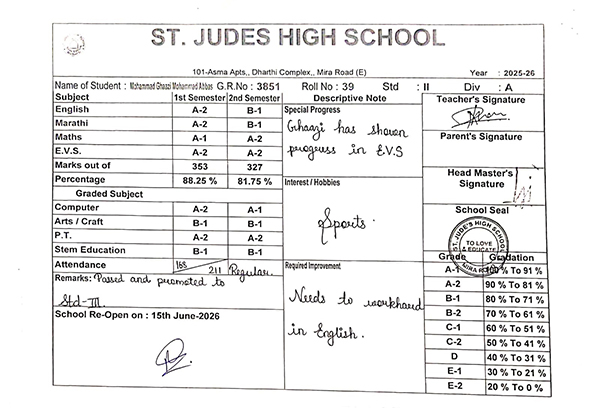 ST. JUDES HIGH SCHOOL
101-Asma Apts,, Dharthi Complex,, Mira Road (E)
Year : 2025-26
Name of Student : Mohammad Ghaazi Mohammad Abbas G.R.No : 3851 Roll No : 39 Std : II Div : A
Subject 1st Semester 2nd Semester
English A-2 B-1
Marathi A-2 B-1
Maths A-1 A-2
E.V.S. A-2 A-2
Marks out of 353 327
Percentage 88.25 % 81.75 %
Graded Subject
Computer A-2 A-1
Arts / Craft B-1 B-1
P.T. A-2 A-2
Stem Education B-1 B-1
Attendance 168 211 Regular.
Remarks: Passed and promoted to
Std-III.
School Re-Open on : 15th June-2026
Descriptive Note
Special Progress
Ghaazi has shown
progress in E.V.S
Interest / Hobbies
Sports.
Required Improvement
Needs to workhard
in English.
Teacher's Signature
Parent's Signature
Head Master's
Signature
School Seal
ST. JUDE'S HIGH SCHOOL
TO LOVE
& EDUCATE
MIRA ROAD
Grade Gradation
A-1 100 % To 91 %
A-2 90 % To 81 %
B-1 80 % To 71 %
B-2 70 % To 61 %
C-1 60 % To 51 %
C-2 50 % To 41 %
D 40 % To 31 %
E-1 30 % To 21 %
E-2 20 % To 0 %